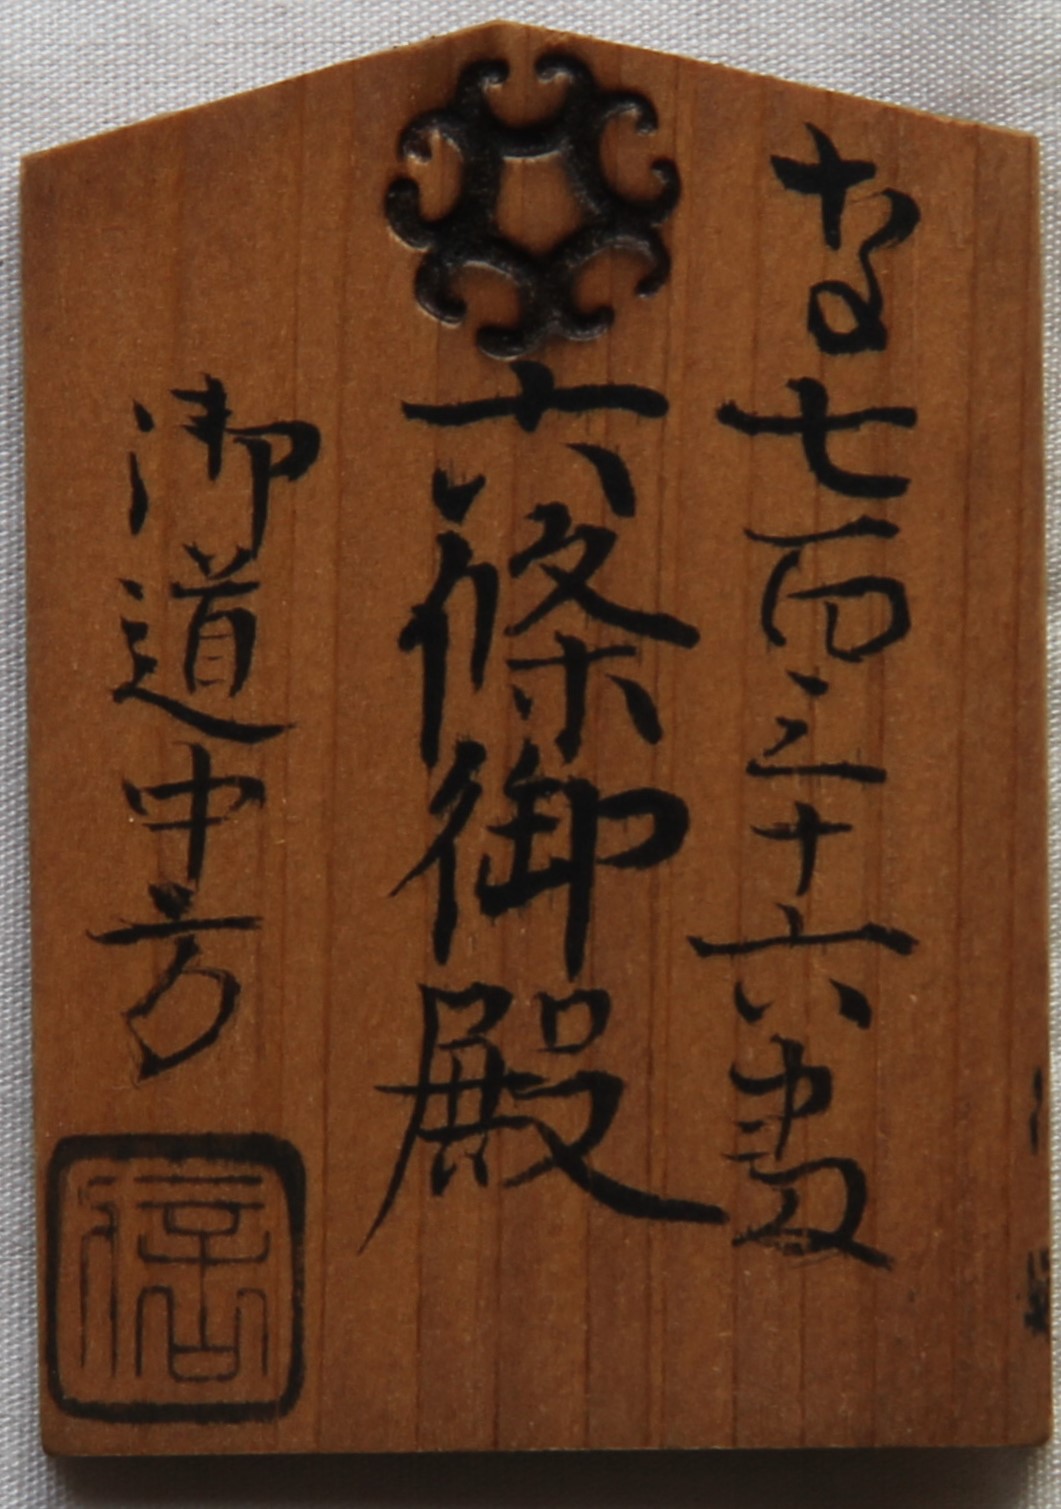 な七百三十六
六條御殿
御道中方